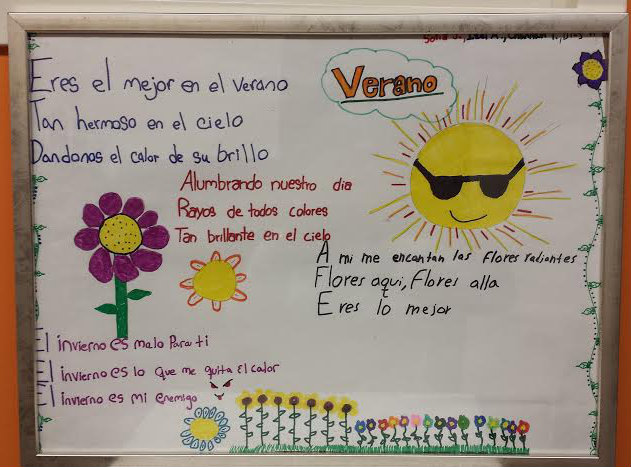 Verano
Eres el mejor en el verano
Tan hermoso en el cielo
Dandonos el calor de su brillo
Alumbrando nuestro dia
Rayos de todos colores
Tan brillante en el cielo
A mi me encantan las flores radiantes
Flores aqui, Flores alla
Eres lo mejor
El invierno es malo Para ti
El invierno es lo que me quita El calor
El invierno es mi enemigo